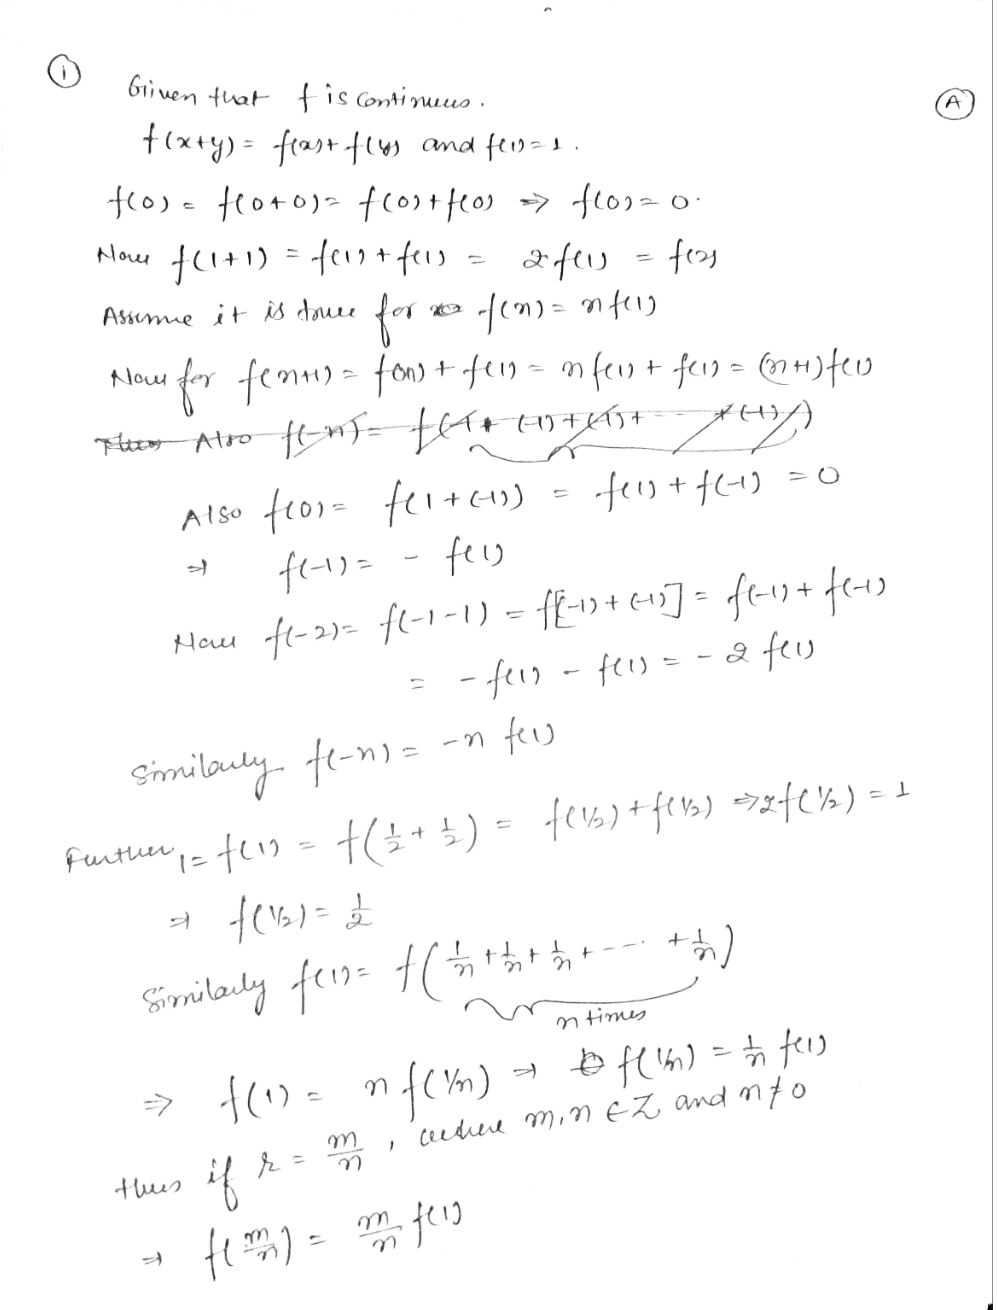 ① Given that f is continuous.
Ⓐ
f(x+y) = f(x)+f(y) and f(1)=1.
f(0) = f(0+0) = f(0)+f(0) ⇒ f(0)=0.
Now f(1+1) = f(1)+f(1) = 2f(1) = f(2)
Assume it is true for f(n)= nf(1)
Now for f(n+1) = f(n)+f(1) = nf(1)+f(1) = (n+1)f(1)
Thus Also f(-n)= f(1+(-1)+(-1)+---+(-1))
Also f(0)= f(1+(-1)) = f(1)+f(-1) =0
⇒ f(-1)= - f(1)
Now f(-2)= f(-1-1) = f[(-1)+(-1)] = f(-1)+f(-1)
= -f(1) - f(1) = -2f(1)
Similarly f(-n) = -n f(1)
Further, 1= f(1) = f(1/2 + 1/2) = f(1/2)+f(1/2) ⇒2f(1/2)=1
⇒ f(1/2) = 1/2
Similarly f(1)= f(1/n + 1/n + 1/n + --- + 1/n)
n times
⇒ f(1) = n f(1/n) ⇒ f(1/n) = 1/n f(1)
thus if r = m/n, where m,n ∈ Z and n≠0
⇒ f(m/n) = m/n f(1)